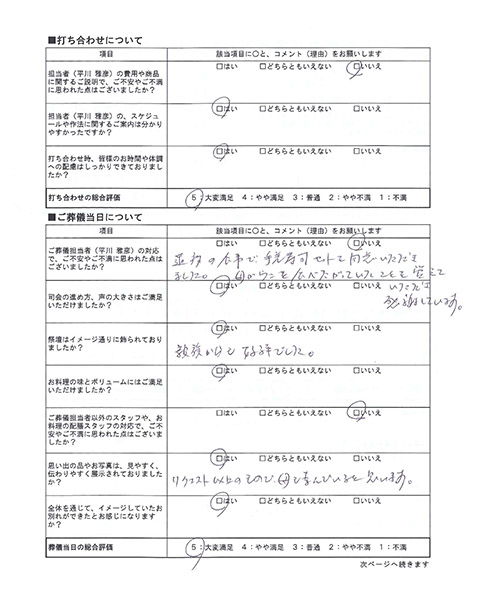 ■打ち合わせについて
項目 該当項目に○と、コメント（理由）をお願いします
担当者（平川 雅彦）の費用や商品
に関するご説明で、ご不安やご不満
に思われた点はございましたか？
□はい □どちらともいえない □いいえ
担当者（平川 雅彦）の、スケジュ
ールや作法に関するご案内は分かり
やすかったですか？
□はい □どちらともいえない □いいえ
打ち合わせ時、皆様のお時間や体調
への配慮はしっかりできておりまし
たか？
□はい □どちらともいえない □いいえ
打ち合わせの総合評価 5：大変満足 4：やや満足 3：普通 2：やや不満 1：不満
■ご葬儀当日について
項目 該当項目に○と、コメント（理由）をお願いします
ご葬儀担当者（平川 雅彦）の対応
で、ご不安やご不満に思われた点は
ございましたか？
□はい □どちらともいえない □いいえ
セットで用意いただき
ました。
いたことを覚えて
いただき
感謝しています。
司会の進め方、声の大きさはご満足
いただけましたか？
□はい □どちらともいえない □いいえ
祭壇はイメージ通りに飾られており
ましたか？
□はい □どちらともいえない □いいえ
親族からも好評でした。
お料理の味とボリュームにはご満足
いただけましたか？
□はい □どちらともいえない □いいえ
ご葬儀担当者以外のスタッフや、お
料理の配膳スタッフの対応で、ご不
安やご不満に思われた点はございま
したか？
□はい □どちらともいえない □いいえ
思い出の品やお写真は、見やすく、
伝わりやすく展示されておりました
か？
□はい □どちらともいえない □いいえ
リクエスト以上のもので、母も喜んでいると思います。
全体を通じて、イメージしていたお
別れができたとお感じになります
か？
□はい □どちらともいえない □いいえ
葬儀当日の総合評価 5：大変満足 4：やや満足 3：普通 2：やや不満 1：不満
次ページへ続きます